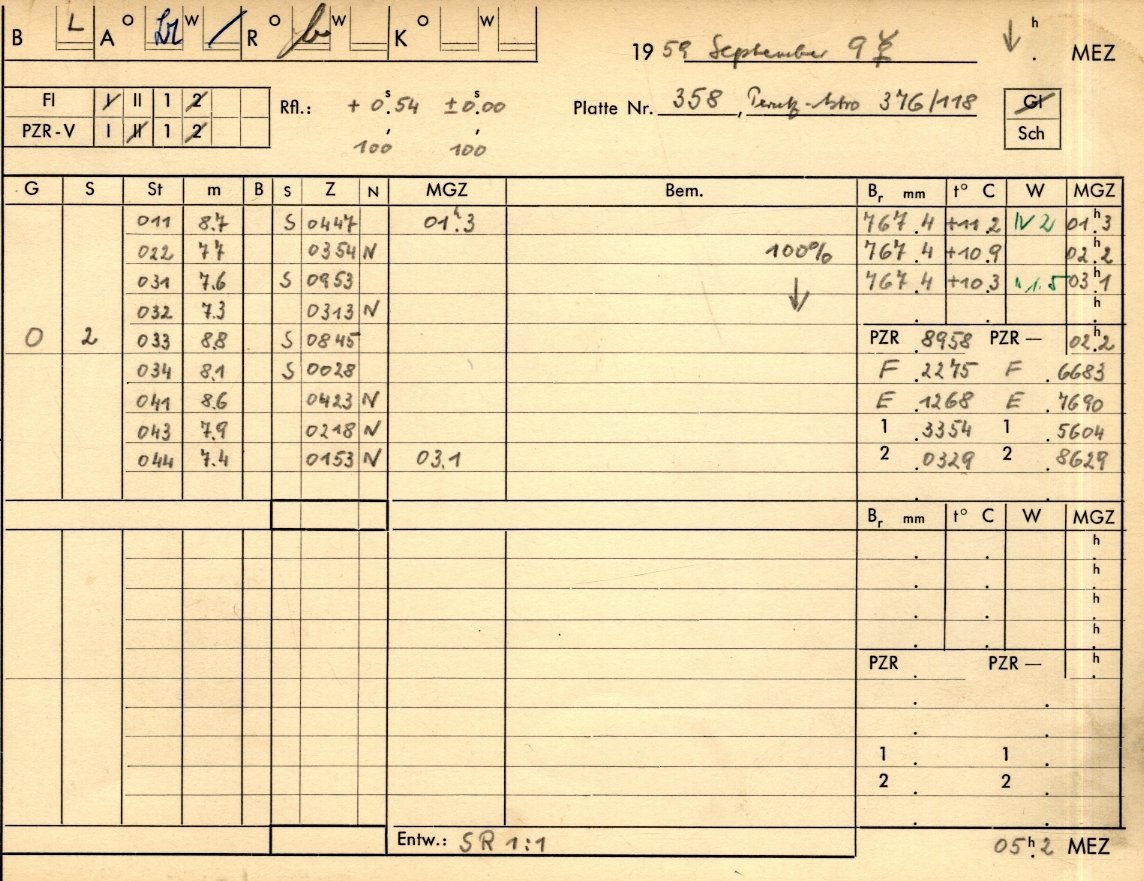 B L A O Lr W / R O W K O W
1959 September 9 ↓ h . MEZ
Fl I II 1 2
PZR-V I II 1 2
Rfl.: + 0ˢ.54 ±0ˢ.00
100 100
Platte Nr. 358, Perutz-Astro 376/118
Gl
Sch
G S St m B S Z N MGZ Bem. Bᵣ mm t° C W MGZ
011 8.7 S 0447 01ʰ.3 767.4 +11.2 IV 2 01ʰ.3
022 7.7 0354 N 100% 767.4 +10.9 02ʰ.2
031 7.6 S 0953 ↓ 767.4 +10.3 " 1.5 03ʰ.1
032 7.3 0313 N . . h .
0 2 033 8.8 S 0845 PZR .8958 PZR — 02ʰ.2
034 8.1 S 0028 F .2275 F .6683
041 8.6 0423 N E .1268 E .7690
043 7.9 0218 N 1 .3354 1 .5604
044 7.4 0153 N 03.1 2 .0329 2 .8629
Bᵣ mm t° C W MGZ
h
h
h
h
PZR . PZR — h
1 . 1 .
2 . 2 .
Entw.: SR 1:1 05ʰ.2 MEZ